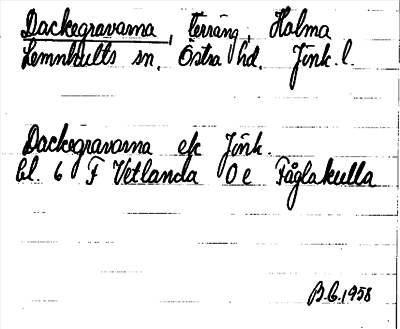 Dackegravarna, terräng, Holma
Lemnhults sn. Östra hd. Jönk. l.
Dackegravarna ek Jönk.
bl. 6 F Vetlanda 0 e Fåglakulla
B.G. 1958